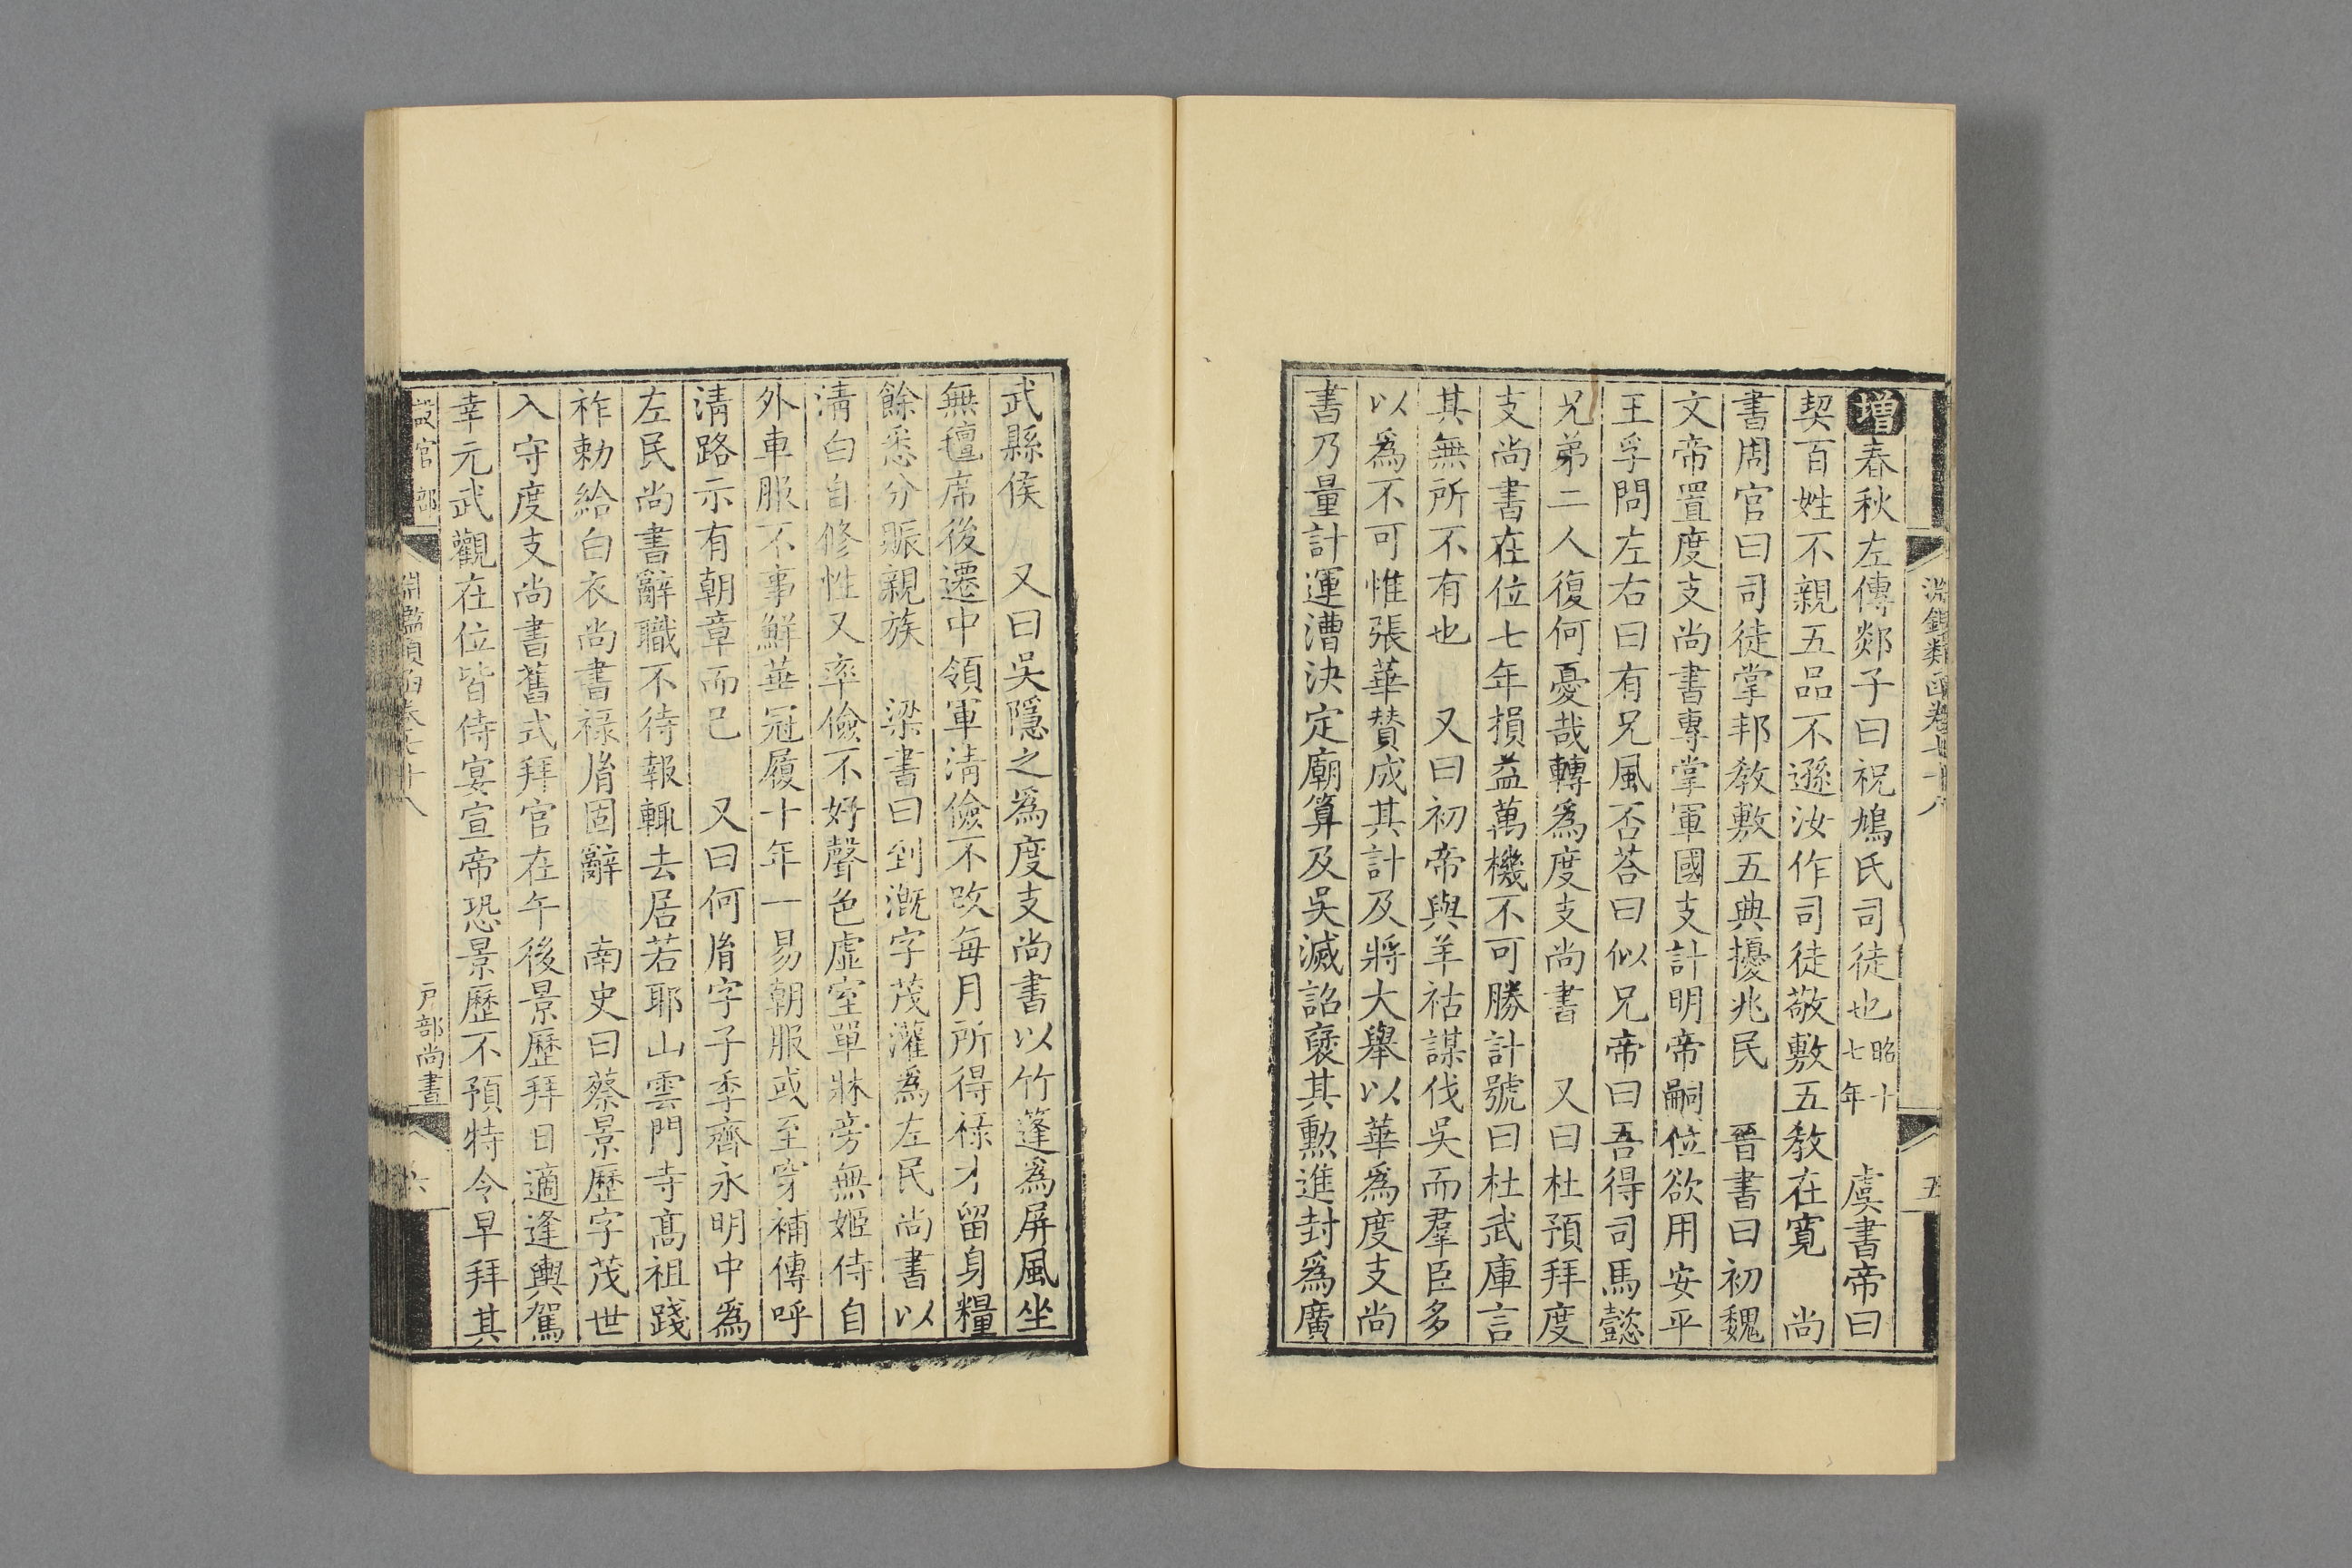 淵鑑類函卷七十八
五
增春秋左傳郯子曰祝鳩氏司徒也昭十七年 虞書帝曰
契百姓不親五品不遜汝作司徒敬敷五教在寬 尚
書周官曰司徒掌邦教敷五典擾兆民 晉書曰初魏
文帝置度支尚書專掌軍國支計明帝嗣位欲用安平
王孚問左右曰有兄風否荅曰似兄帝曰吾得司馬懿
兄弟二人復何憂哉轉爲度支尚書 又曰杜預拜度
支尚書在位七年損益萬機不可勝計號曰杜武庫言
其無所不有也 又曰初帝與羊祜謀伐吳而羣臣多
以爲不可惟張華贊成其計及將大舉以華爲度支尚
書乃量計運漕決定廟算及吳滅詔褒其勲進封爲廣
武縣侯 又曰吳隱之爲度支尚書以竹篷爲屏風坐
無氊席後遷中領軍清儉不改每月所得祿才留身糧
餘悉分賑親族 梁書曰到溉字茂灌爲左民尚書以
清白自修性又率儉不好聲色虛室單牀旁無姬侍自
外車服不事鮮華冠履十年一易朝服或至穿補傳呼
清路示有朝章而已 又曰何胤字子季齊永明中爲
左民尚書辭職不待報輒去居若耶山雲門寺髙祖踐
祚勅給白衣尚書祿胤固辭 南史曰蔡景歷字茂世
入守度支尚書舊式拜官在午後景歷拜日適逢輿駕
幸元武觀在位皆侍宴宣帝恐景歷不預特令早拜其
設官部
淵鑑類函卷七十八
戸部尚書
六